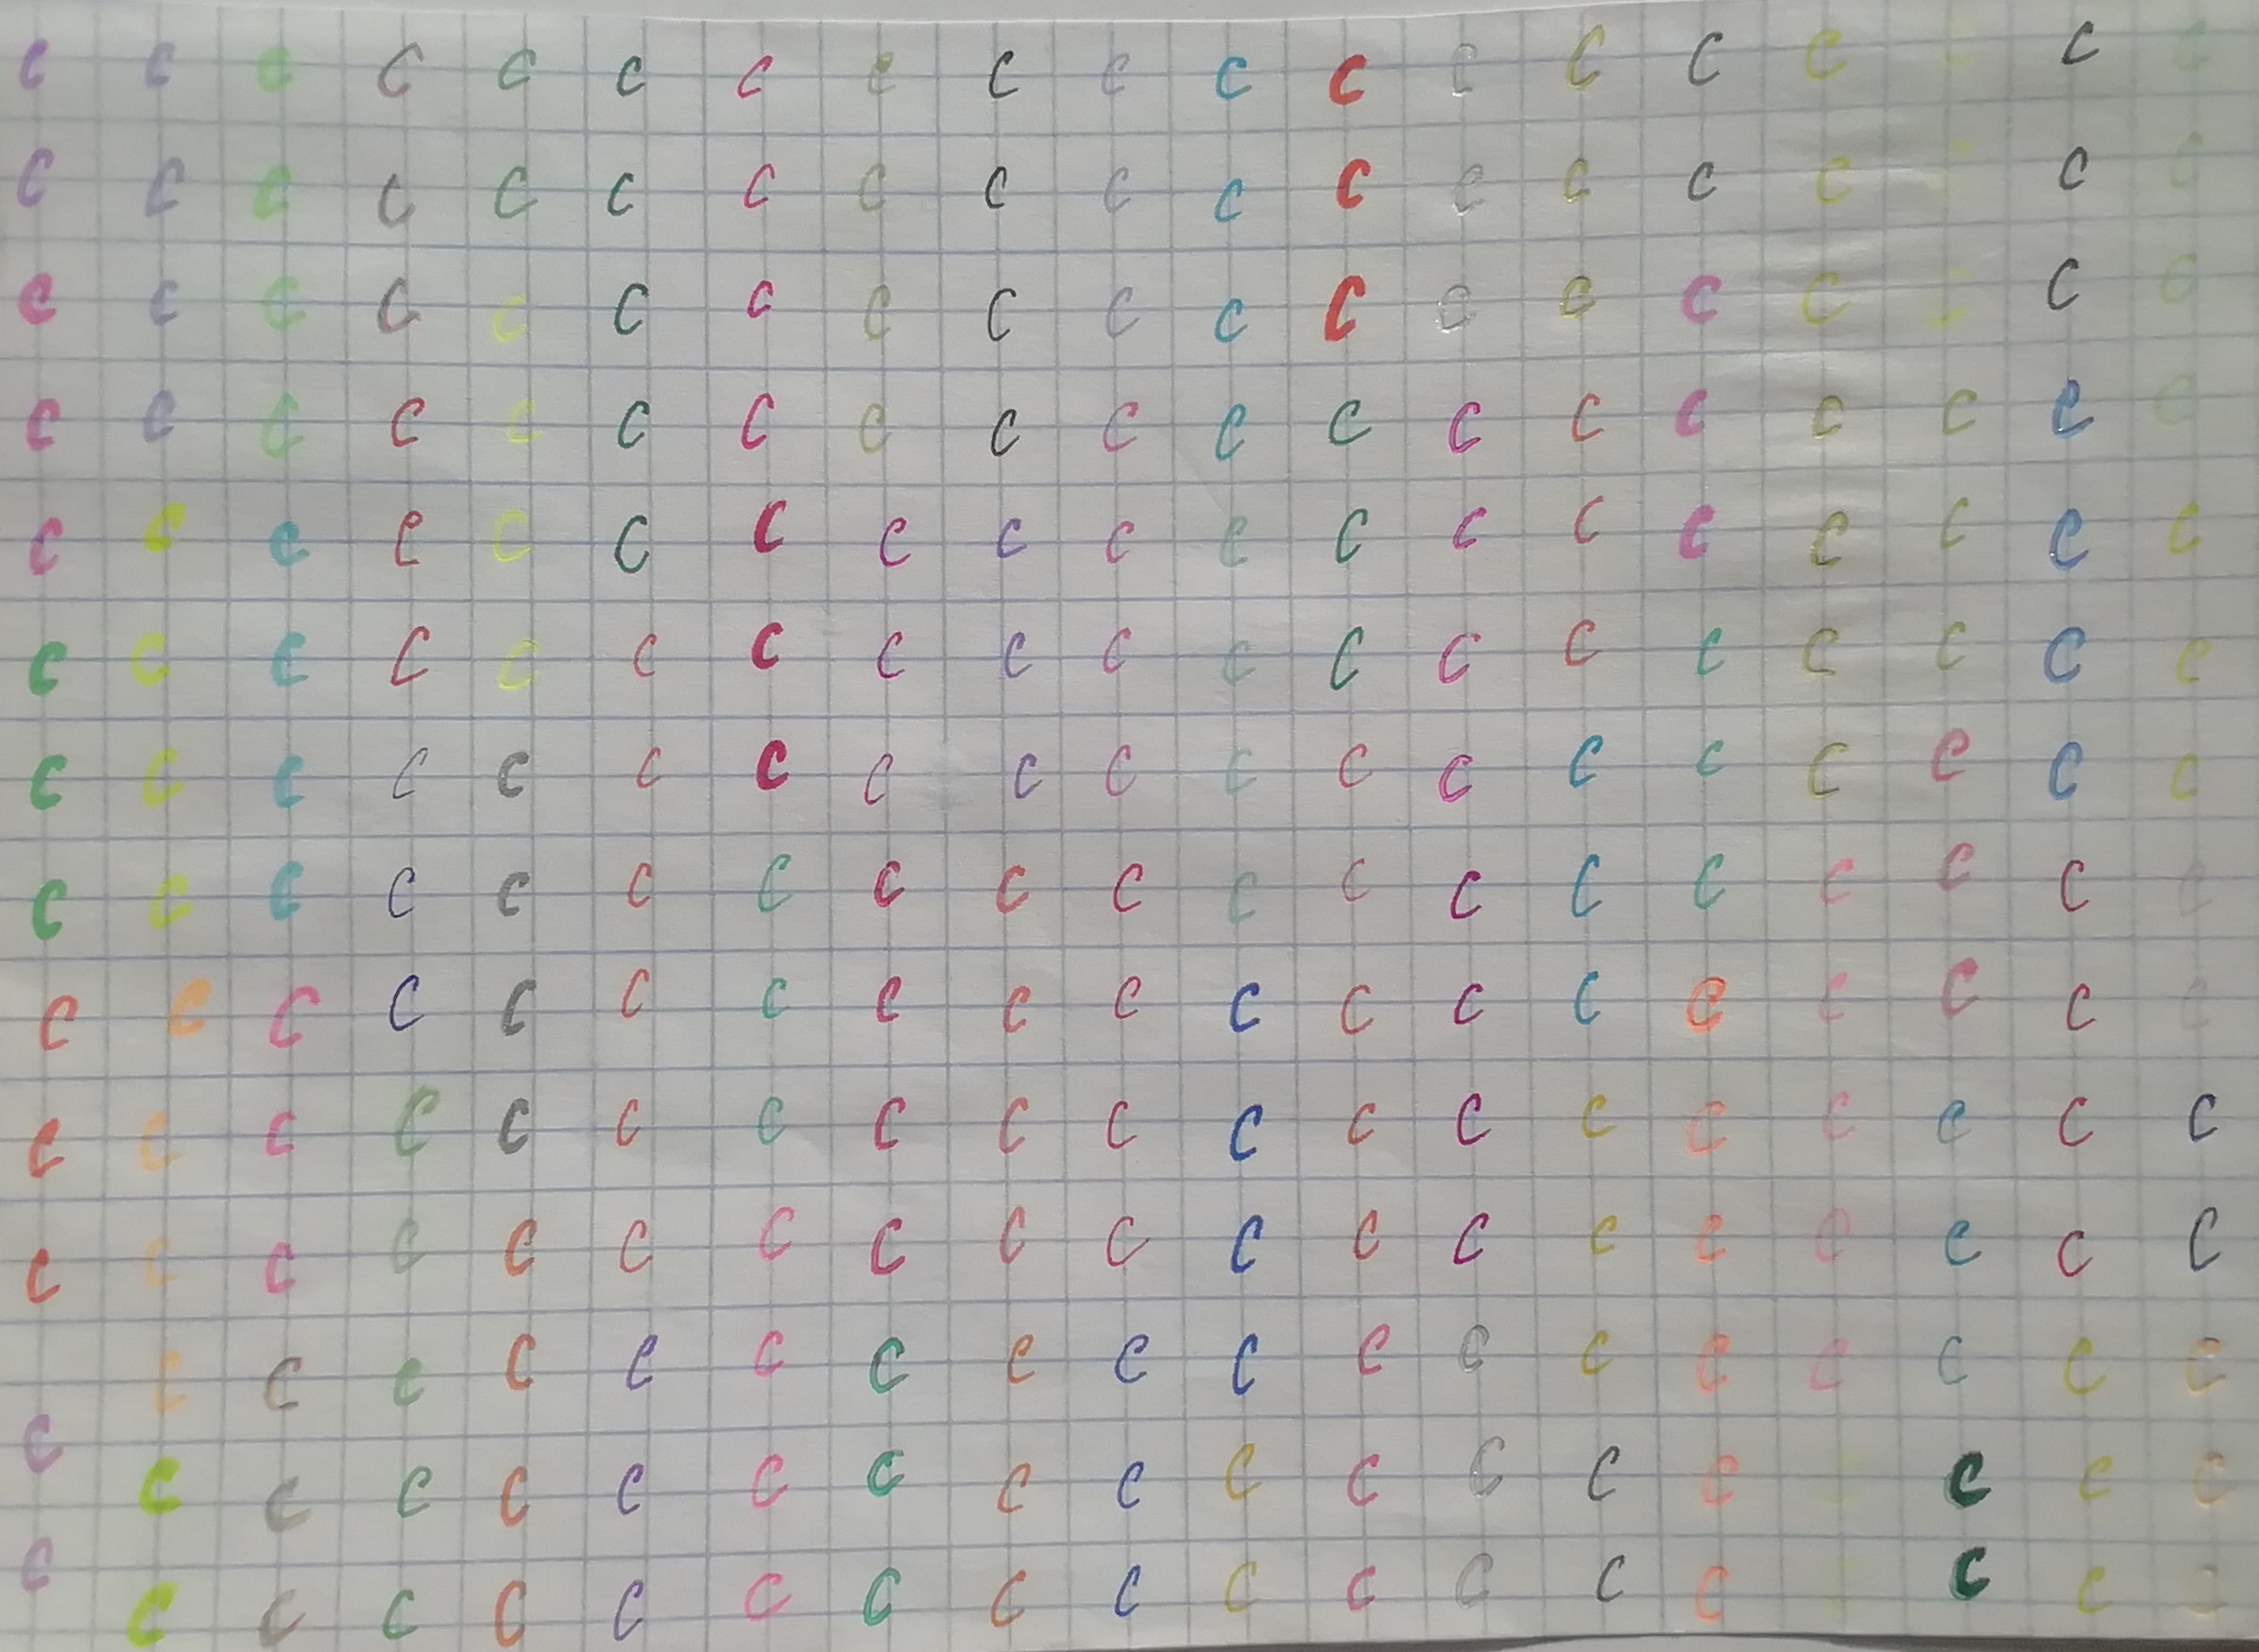 c c c c c c c c c c c c c c c c c c c
c c c c c c c c c c c c c c c c c c c
c c c c c c c c c c c c c c c c c c c
c c c c c c c c c c c c c c c c c c c
c c c c c c c c c c c c c c c c c c c
c c c c c c c c c c c c c c c c c c c
c c c c c c c c c c c c c c c c c c c
c c c c c c c c c c c c c c c c c c c
c c c c c c c c c c c c c c c c c c c
c c c c c c c c c c c c c c c c c c c
c c c c c c c c c c c c c c c c c c c
c c c c c c c c c c c c c c c c c c
c c c c c c c c c c c c c c c c c c
c c c c c c c c c c c c c c c c c c